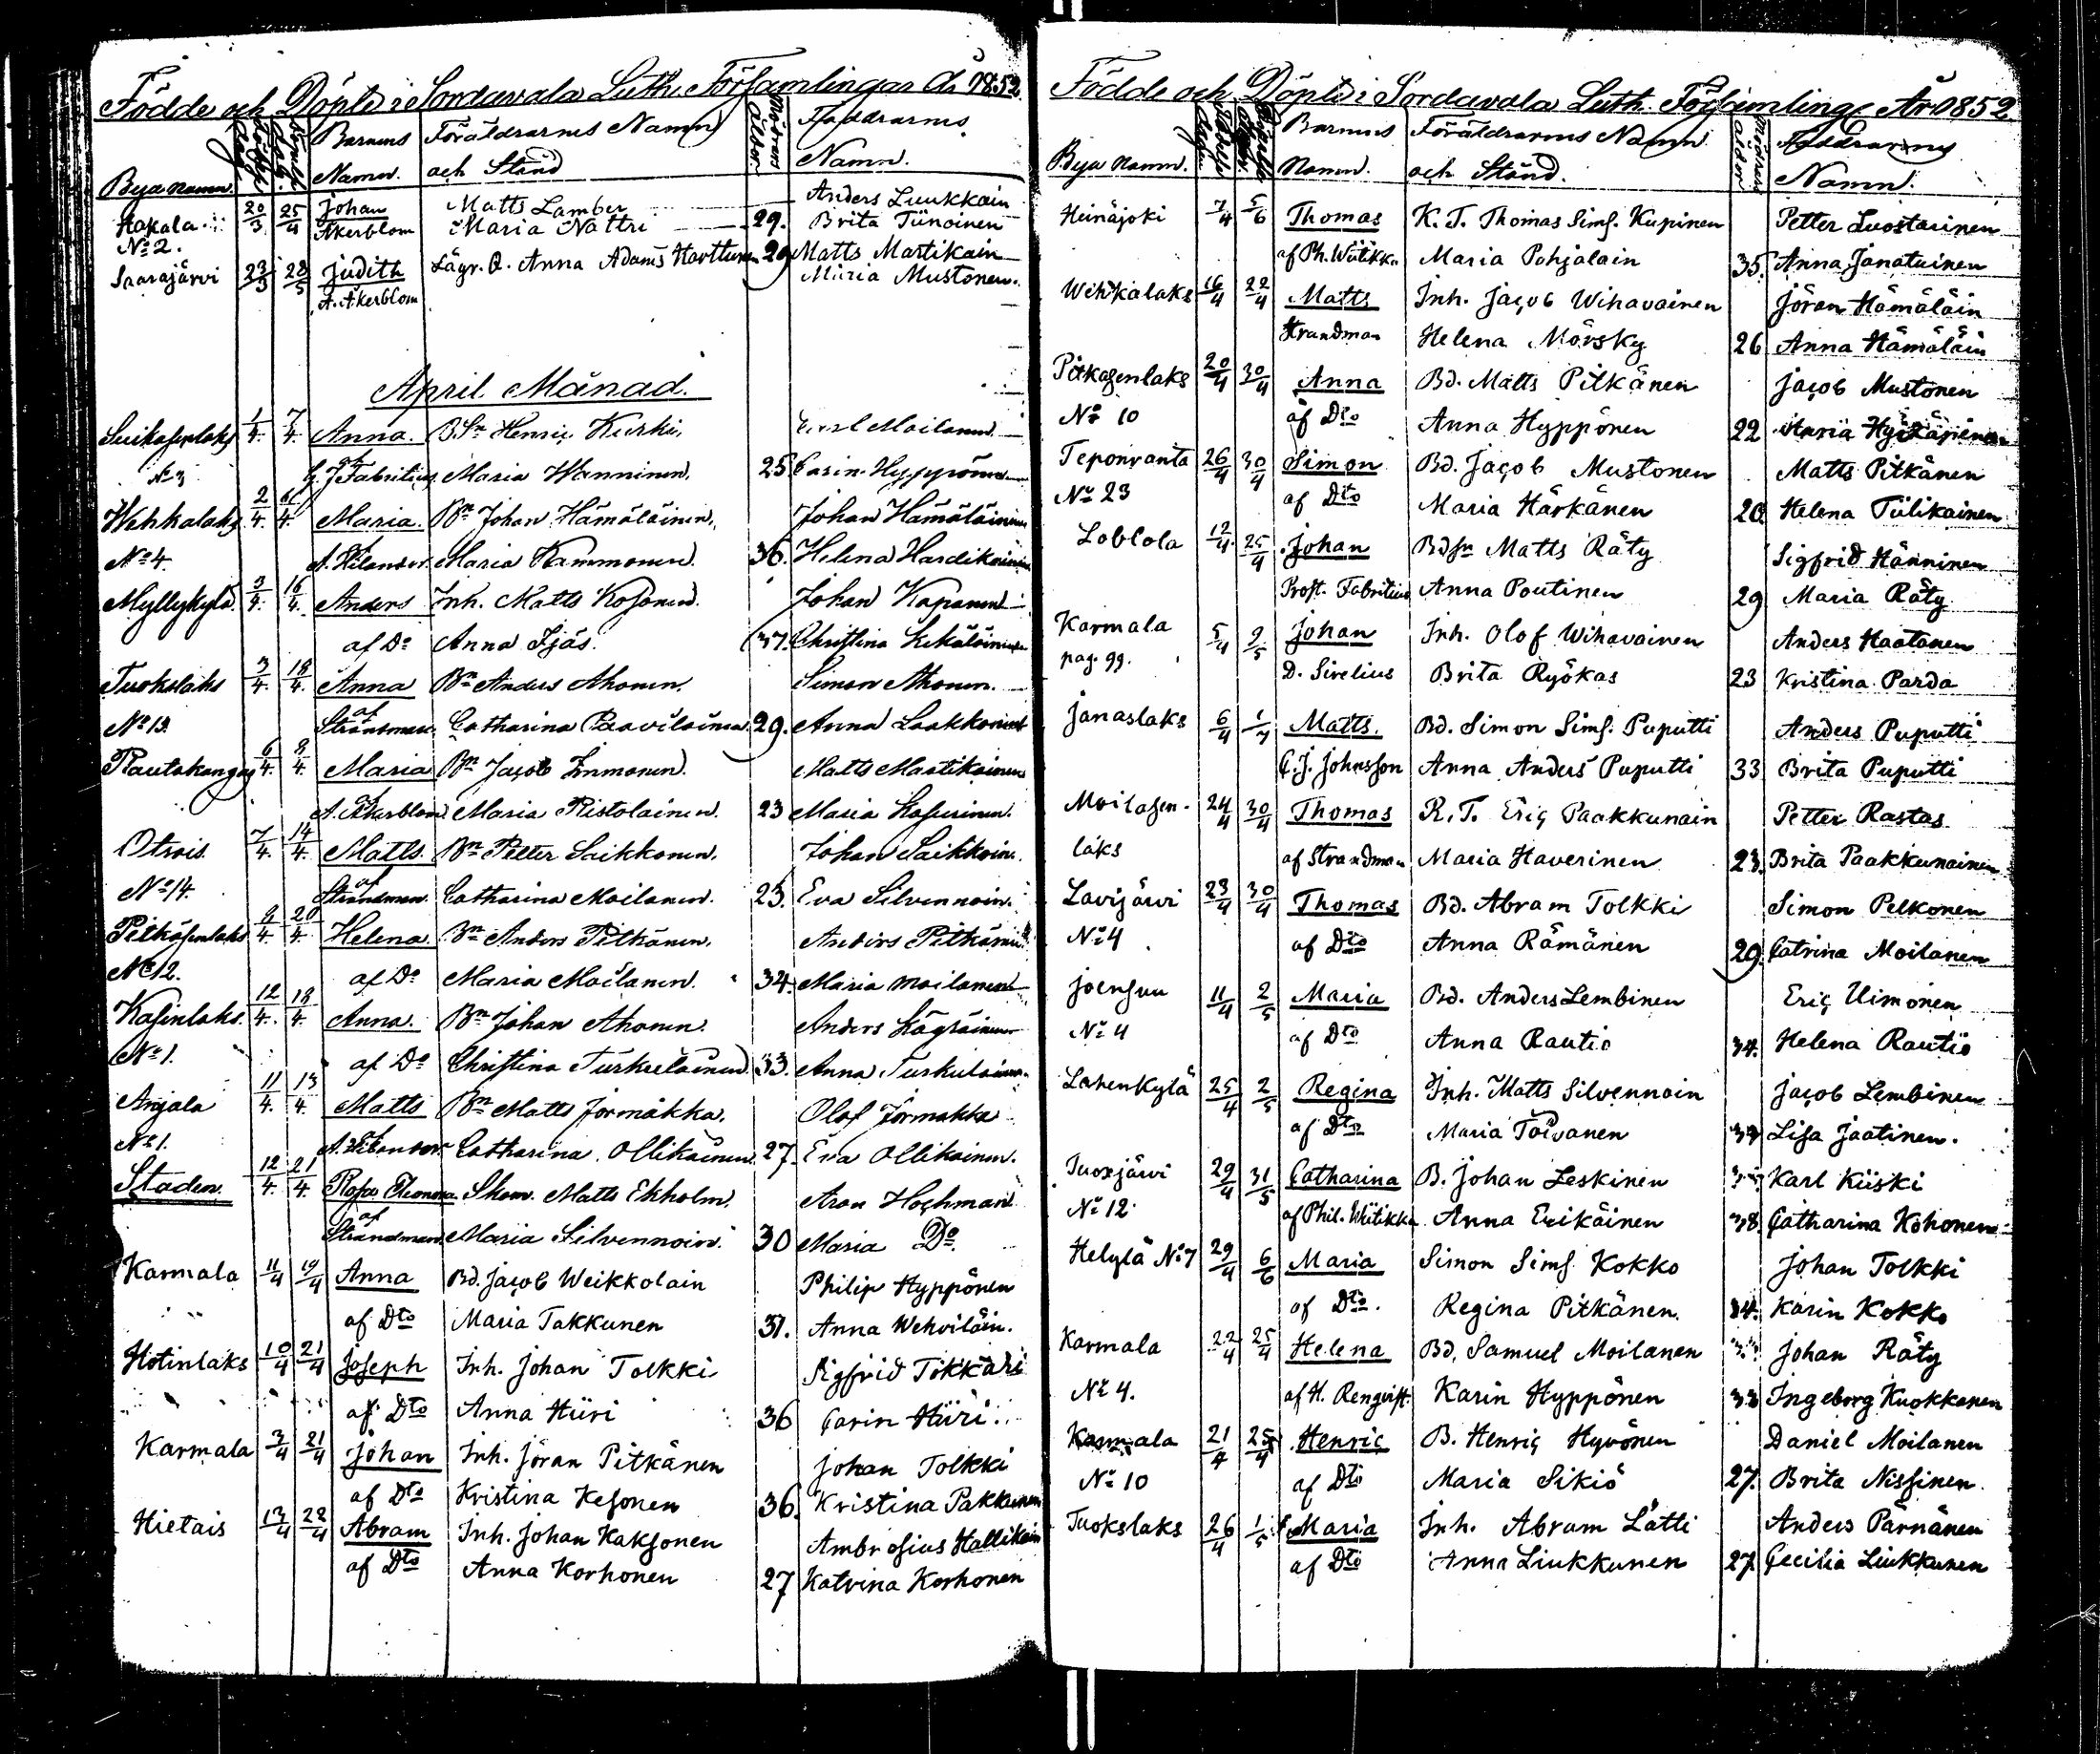 Födde och Döpte i Sordavala Luth. Församlingar År 1852.
Bya namn. Barnens Namn. Föräldrarnes Namn och Stånd Modrens ålder Faddrarnes Namn.
Hakala 20/3 25/4 Johan Matts Lamber Anders Luukkain
No 2. Åkerblom Maria Nättri 29. Brita Tiinoinen
Saarajärvi 23/3 28/5 Judith Lägr. Q. Anna Adams Harttunen 29 Matts Martikain
A. Åkerblom Maria Mustonen.
April Månad.
1/4 7/4 Anna. B.Sn Henric Kurki, Moilanen
No 3 af G. J. Fabritius Maria Hänninen, 25 Carin Hyppönen
Wehkalaks 2/4 6/4 Maria. Bn Johan Hämäläinen, Johan Hämäläinen
No 4. A. Kilander. Maria Kammonen. 36. Helena Hardikainen
Myllykylä 3/4 16/4 Anders Inh. Matts Kosonen. Johan Kaponen
af Do Anna Sjäs. 37. Christina Kekäläinen
Tuokslaks 3/4 18/4 Anna Bn Anders Ahonen. Simon Ahonen.
No 13. af Strandman. Catharina Paavilainen. 29. Anna Laakkonen
Rautakangas 6/4 8/4 Maria Bn Jacob Immonen. Matts Martikainen
A. Åkerblom Maria Ristolainen. 23 Maria Kasurinen.
Otrois 7/4 14/4 Matts. Bn Petter Saikkonen. Johan Saikkoin.
No 14. af Strandman. Catharina Moilanen. 23. Eva Silvennoin.
Pitkäsenlaks 9/4 20/4 Helena. Bn Anders Pitkänen. Anders Pitkänen
No 12. af Do Maria Moilanen. 34. Maria Moilanen
Kasinlaks. 12/4 18/4 Anna. Bn Johan Ahonen. Anders
No 1. af Do Christina Turkulainen 33. Anna Turkulainen.
Anjala 11/4 13/4 Matts Bn Matts Jormakka. Olof Jormakka
No 1. A. Kilander. Catharina Ollikainen 27. Eva Ollikainen.
Staden. 12/4 21/4 Rosa Eleonora Skom. Matts Ekholm. Aron Hochman
af Strandman. Maria Silvennoin. 30 Maria Do.
Karmala 11/4 19/4 Anna Bd. Jacob Weikkolain Philip Hyppönen
af Dto Maria Takkunen 31. Anna Wehviläin.
Hotinlaks 10/4 21/4 Joseph Inh. Johan Tolkki Sigfrid Tokkari
af Dto Anna Hiiri 36 Carin Hiiri.
Karmala 3/4 21/4 Johan Inh. Jöran Pitkänen Johan Tolkki
af Dto Kristina Kesonen 36. Kristina Pakkanen
Hietais 13/4 22/4 Abram Inh. Johan Kaksonen Ambrosius Hallikain
af Dto Anna Korhonen 27 Katrina Korhonen
Födde och Döpte i Sordavala Luth. Församlingar År 1852
Bya Namn. Barnens Namn. Föräldrarnes Namn och Stånd. Modrens ålder Faddrarnes Namn.
Heinäjoki 7/4 5/6 Thomas K. T. Thomas Sims. Kupinen Petter Luostarinen
af Ph. Wiitikka Maria Pohjalain 35. Anna Janatuinen
Wehkalaks 16/4 22/4 Matts Inh. Jacob Wihavainen Jöran Hämäläin
Strandman Helena Mörsky 26 Anna Hämäläin
Pitkäsenlaks 20/4 30/4 Anna Bd. Matts Pitkänen Jacob Mustonen
No 10 af Dto Anna Hyppönen 22 Maria
Teponranta 26/4 30/4 Simon Bd. Jacob Mustonen Matts Pitkänen
No 23 af Dto Maria Härkänen 20. Helena Tiilikainen
Loblola 12/4 25/4 Johan Bdsn Matts Räty Sigfrid Hänninen
Prost. Fabritius Anna Poutinen 29 Maria Räty
Karmala 5/4 9/5 Johan Inh. Olof Wihavainen Anders Haatanen
pag. 99. D. Sirelius Brita Ryökas 23 Kristina Parda
Janaslaks 6/4 1/7 Matts. Bd. Simon Sims. Puputti Anders Puputti
C. J. Johnsson Anna Anders Puputti 33 Brita Puputti
Moilasen- 24/4 30/4 Thomas R. T. Eric Paakkunain Petter Rastas
laks af Strandman Maria Haverinen 23. Brita Paakkunainen
Lavijärvi 23/4 30/4 Thomas Bd. Abram Tolkki Simon Pelkonen
No 4 af Dto Anna Rämänen 29. Catrina Moilanen
Joensuu 11/4 2/5 Maria Bd. Anders Lembinen Eric Uimonen
No 4 af Dto Anna Rautio 34. Helena Rautio
Lahenkylä 25/4 2/5 Regina Inh. Matts Silvennoin Jacob Lembinen
af Dto Maria Toivanen Lisa Jaatinen.
Tuoxjärvi 29/4 31/5 Catharina B. Johan Leskinen Karl Kiiski
No 12 af Phil. Wiitikka Anna Erikäinen 38. Catharina Kohonen
Helylä No 7 29/4 6/6 Maria Simon Sims. Kokko Johan Tolkki
af Dto. Regina Pitkänen. 34. Karin Kokko
Karmala 22/4 25/4 Helena Bd. Samuel Moilanen Johan Räty
No 4. af H. Renqvist. Karin Hyppönen 33 Ingeborg Kuokkanen
Karmala 21/4 25/4 Henric B. Henric Hyvönen Daniel Moilanen
No 10 af Dto Maria Sikiö 27. Brita Nissinen.
Tuokslaks 26/4 1/5 Maria Inh. Abram Lätti Anders Pärnänen
af Dto Anna Liukkunen 27 Cecilia Liukkunen